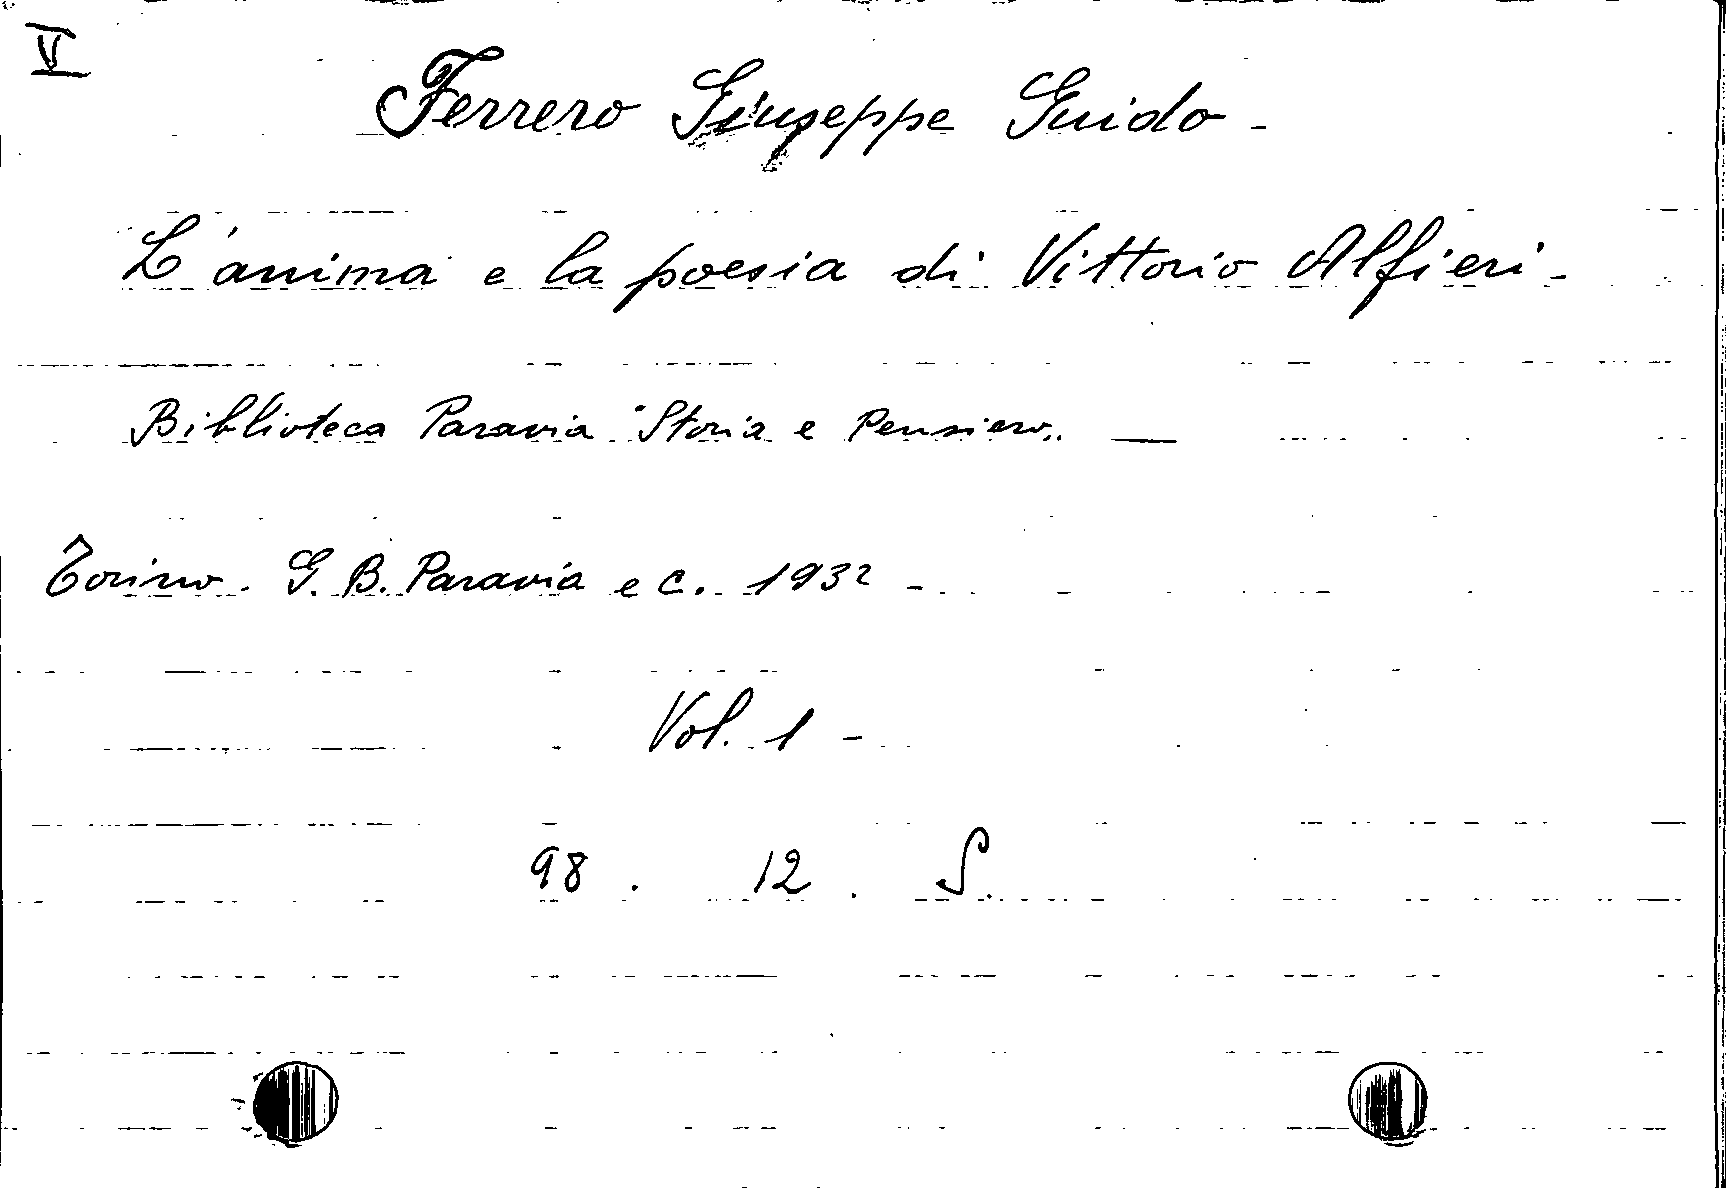 V
Ferrero Giuseppe Guido -
L'anima e la poesia di Vittorio Alfieri -
Biblioteca Paravia "Storia e Pensiero„ —
Torino. G. B. Paravia e C. 1932 -
Vol. 1 -
98 . 12 . S.